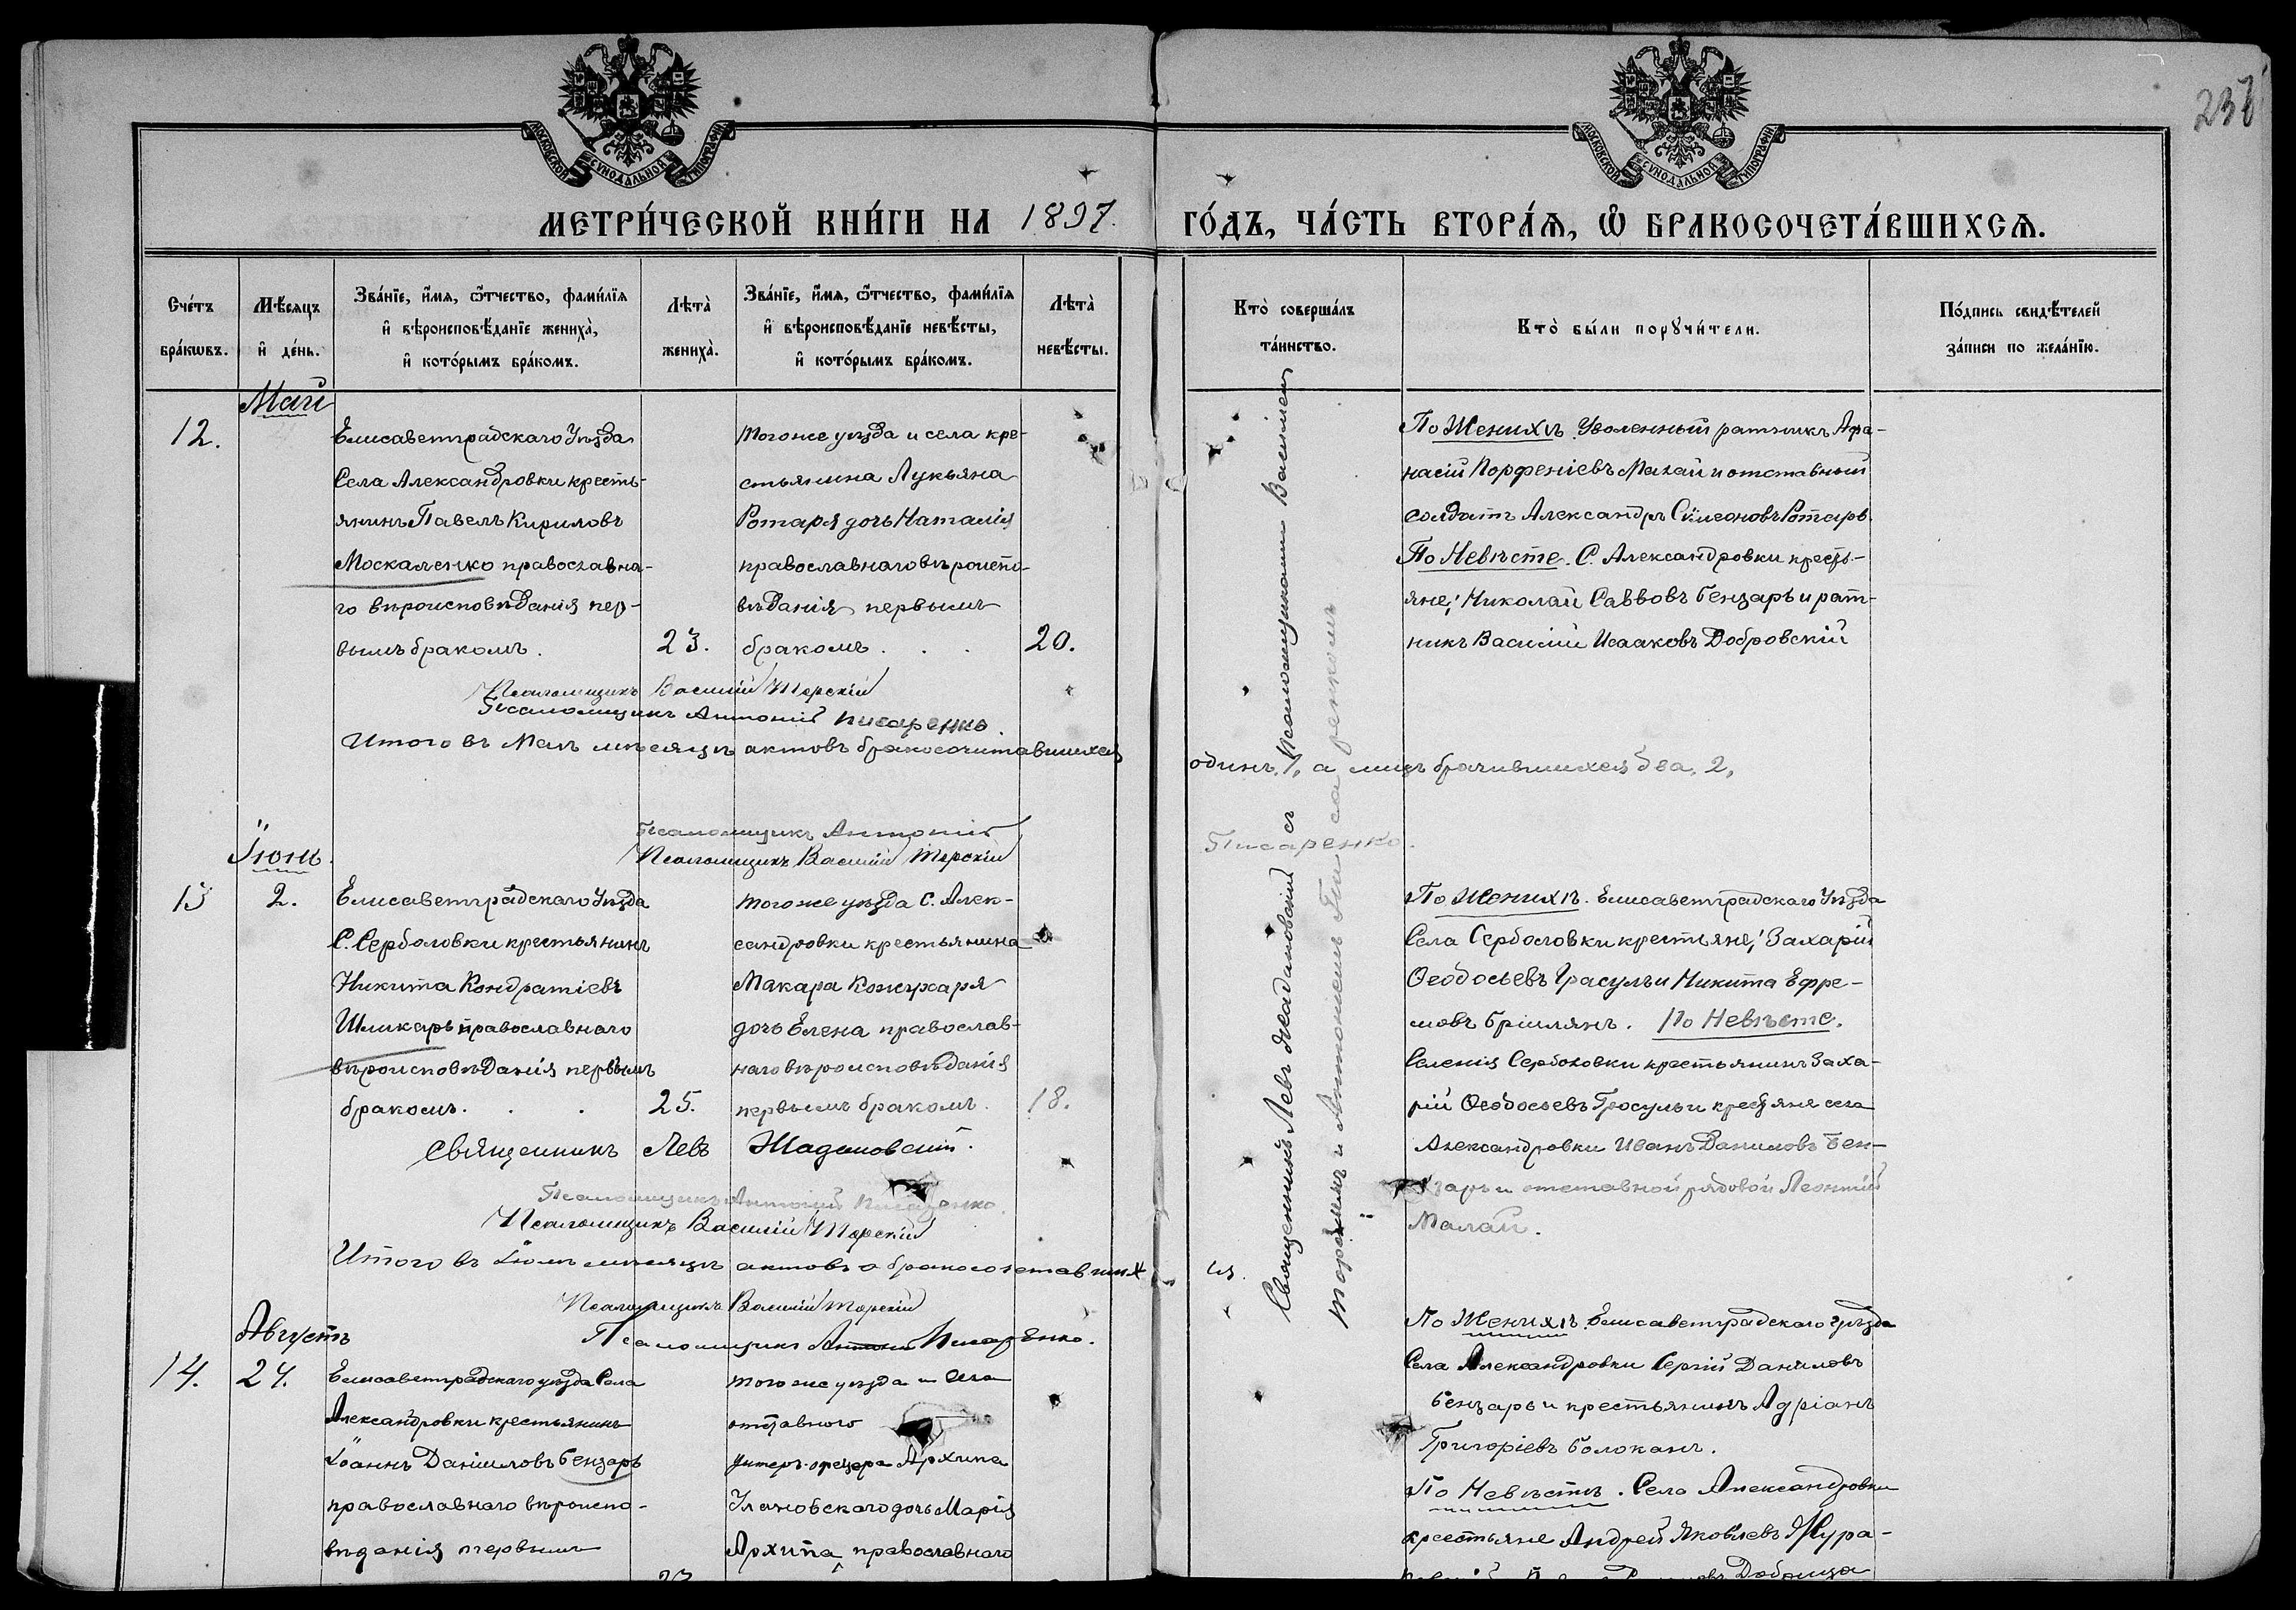 МОСКОВСКОЙ СѴНОДАЛЬНОЙ ТИПОГРАФІИ
МОСКОВСКОЙ СѴНОДАЛЬНОЙ ТИПОГРАФІИ
МЕТРИ́ЧЕСКОЙ КНИ́ГИ НА 1897.
ГО́ДЪ, ЧА́СТЬ ВТОРА́Ѧ, Ѡ҆ БРАКОСОЧЕТА́ВШИХСѦ.
Сче́тъ бра́кѡвъ.
Мѣ́сѧцъ и҆ де́нь.
Зва́нїе, и҆́мѧ, ѻ҆́тчество, фами́лїѧ и҆ вѣроисповѣ́данїе жениха̀, и҆ кото́рымъ бра́комъ.
Лѣта̀ жениха̀.
Зва́нїе, и҆́мѧ, ѻ҆́тчество, фами́лїѧ и҆ вѣроисповѣ́данїе невѣ́сты, и҆ кото́рымъ бра́комъ.
Лѣта̀ невѣ́сты.
Кто̀ соверша́лъ та́инство.
Кто̀ бы́ли порꙋчи́тели.
По́дпись свидѣ́телей за́писи по жела́нїю.
Май
12.
Елисаветградскаго Уѣзда
Села Александровки кресть-
янинъ Павелъ Кириловъ
Москаленко православна-
го вѣроисповѣданія пер-
вымъ бракомъ.
23.
тогоже уѣзда и села кре-
стьянина Лукьяна
Ротаря дочь Наталія
православнаго вѣроиспо-
вѣданія первымъ
бракомъ . . .
20.
По Женихѣ. Уволенный ратникъ Афа-
насій Порфеніевъ Малай и отставный
солдатъ Александръ Симеоновъ Ротарь.
По Невѣсте. С. Александровки кресть-
яне; Николай Саввовъ Бензарь и рат-
никъ Василий Исааковъ Добровскій
Псаломщикъ Василій Терскій
Псаломщикъ Антоній Писаренко.
Итого въ Маѣ мѣсяцѣ актовъ бракосочитавшихся
одинъ, 1, а лицъ брачившихся два, 2,
Псаломщикъ Антоній
Писаренко.
Псаломщикъ Василій Терскій
Іюнь.
13
2.
Елисаветградскаго Уѣзда
С. Серболовки крестьянинъ
Никита Кондратіевъ
Шликарь православнаго
вѣроисповѣданія первымъ
бракомъ. . .
25.
тогоже уѣзда С. Алек-
сандровки крестьянина
Макара Кожухаря
дочь Елена православ-
наго вѣроисповѣданія
первымъ бракомъ.
18.
По Женихѣ. Елисаветградскаго Уѣзда
Села Серболовки крестьяне; Захарій
Ѳеодосьевъ Грасулъ и Никита Ефре-
мовъ Бришлянъ. По Невѣсте.
Селенія Серболовки крестьянинъ Заха-
рій Ѳеодосьевъ Гросулъ и крестьяне села
Александровки Иванъ Даниловъ Бен-
зарь и отставной рядовой Леонтій
Малай.
Священникъ Левъ Жадановскій.
Псаломщикъ Антоній Писаренко.
Псаломщикъ Василій Терскій
Итого въ Іюнѣ мѣсяцѣ актовъ о бракосочетавших
ся.
Псаломщикъ Василій Терскій
Псаломщикъ Антоній Писаренко.
Августъ
14.
24.
Елисаветградскаго уѣзда Села
Александровки крестьянинъ
Іоаннъ Даниловъ Бензарь
православнаго вѣроиспо-
вѣданія первымъ
тогоже уѣзда и села
отставного
унтеръ-офицера Архипа
Улановскаго дочь Марія
Архипа православнаго
По Женихѣ. Елисаветградскаго уѣзда
Села Александровки Сергій Даниловъ
Бензарь и крестьянинъ Адріанъ
Григоріевъ Болоканъ.
По Невѣстѣ. Села Александровки
крестьяне Андрей Яковлевъ Жура-
Священникъ Левъ Жадановскій съ Псаломщиками Василіемъ
Терскимъ и Антоніемъ Писаренкомъ